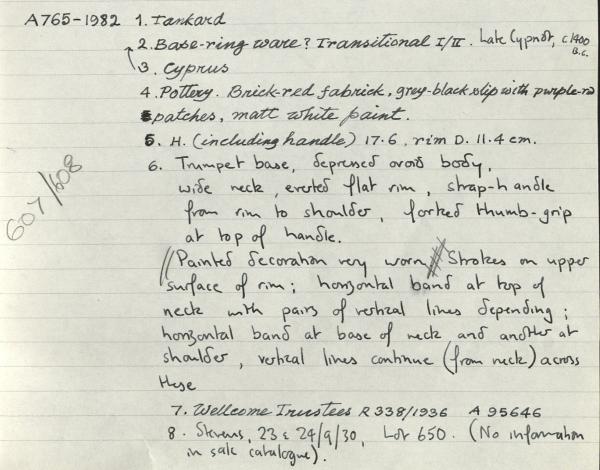 A765-1982 1. Tankard
2. Base-ring ware? Transitional I/II. Late Cypriot, c1400 B.C.
3. Cyprus
4. Pottery. Brick-red fabrick, grey-black slip with purple-red
patches, matt white paint.
5. H. (including handle) 17.6, rim D. 11.4 cm.
6. Trumpet base, depressed ovoid body,
wide neck, everted flat rim, strap-handle
from rim to shoulder, forked thumb-grip
at top of handle.
607/608
//Painted decoration very worn. Strokes on upper
surface of rim; horizontal band at top of
neck with pairs of vertical lines depending;
horizontal band at base of neck and another at
shoulder, vertical lines continue (from neck) across
these
7. Wellcome Trustees R338/1936 A 95646
8. Stevens, 23 & 24/9/30, Lot 650. (No information
in sale catalogue).